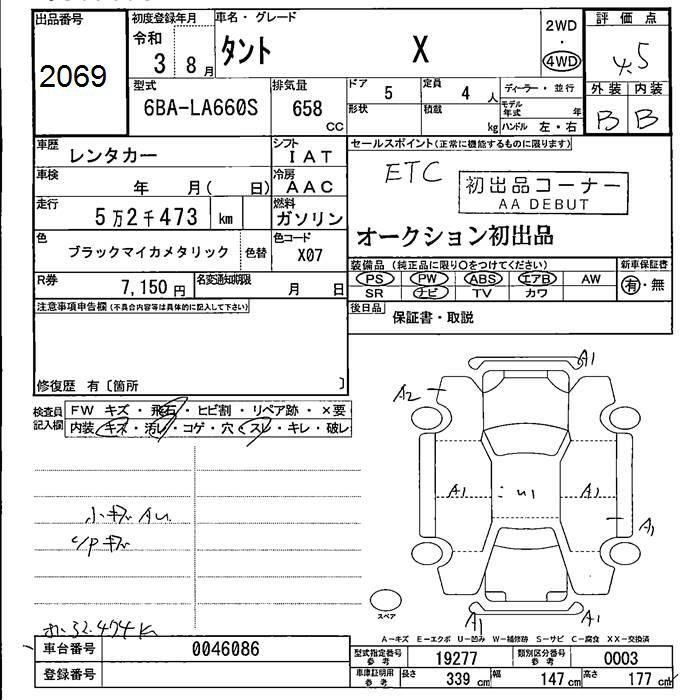 出品番号
2069
初度登録年月
令和
3 8月
車名・グレード
タント X
2WD
・
4WD
評価点
4.5
外装 内装
B B
型式
6BA-LA660S
排気量
658
cc
ドア 5
定員 4 人
形状
積載 kg
ディーラー・並行
モデル年式 年
ハンドル 左・右
車歴
レンタカー
シフト
IAT
車検
年 月( 日)
冷房
AAC
走行
5万2千473 km
燃料
ガソリン
色
ブラックマイカメタリック
色替
色コード
X07
R券
7,150円
名変通知期限
月 日
セールスポイント(正常に機能するものに限ります)
ETC
初出品コーナー
AA DEBUT
オークション初出品
装備品 (純正品に限り○をつけてください)
新車保証書
PS PW ABS エアB AW
有・無
SR ナビ TV カワ
後日品
保証書・取説
注意事項申告欄(不具合内容等は具体的に記入して下さい)
修復歴 有〔箇所 〕
検査員
記入欄
FW キズ・飛石・ヒビ割・リペア跡・×要
内装 キズ・汚レ・コゲ・穴・スレ・キレ・破レ
A1
A2
A1 U1 A1
A1
小キズ AU
C/Pキズ
スペア
A1 A1
52.474K
A-キズ E-エクボ U-凹み W-補修跡 S-サビ C-腐食 XX-交換済
車台番号
0046086
登録番号
型式指定番号
参考
19277
類別区分番号
参考
0003
車庫証明用
参考
長さ 339 cm
幅 147 cm
高さ 177 cm